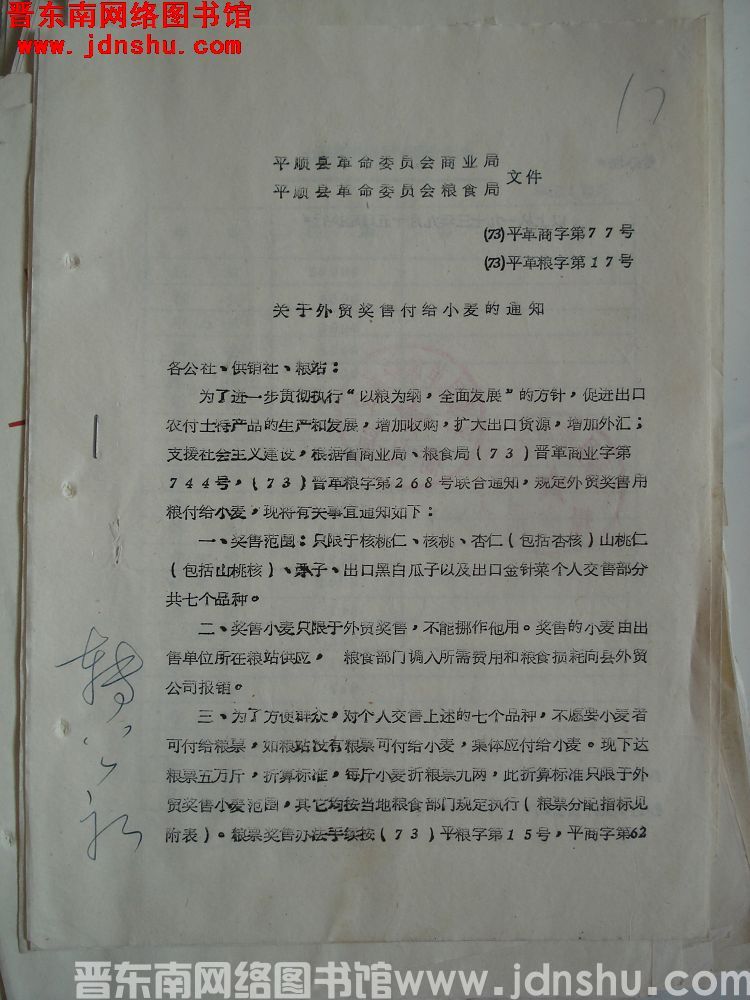 晋东南网络图书馆
www.jdnshu.com
17
平顺县革命委员会商业局
平顺县革命委员会粮食局 文件
(73)平革商字第77号
(73)平革粮字第17号
关于外贸奖售付给小麦的通知
各公社、供销社、粮站：
为了进一步贯彻执行“以粮为纲，全面发展”的方针，促进出口
农付土特产品的生产和发展，增加收购，扩大出口货源，增加外汇；
支援社会主义建设，根据省商业局、粮食局（73）晋革商业字第
744号，（73）晋革粮字第268号联合通知，规定外贸奖售用
粮付给小麦，现将有关事宜通知如下：
一、奖售范围：只限于核桃仁、核桃、杏仁（包括杏核）山桃仁
（包括山桃核）、枣子、出口黑白瓜子以及出口金针菜个人交售部分
共七个品种。
二、奖售小麦只限于外贸奖售，不能挪作他用。奖售的小麦由出
售单位所在粮站供应， 粮食部门调入所需费用和粮食损耗向县外贸
公司报销。
三、为了方便群众，对个人交售上述的七个品种，不愿要小麦者
可付给粮票，如粮站没有粮票可付给小麦，集体应付给小麦。现下达
粮票五万斤，折算标准，每斤小麦折粮票九两，此折算标准只限于外
贸奖售小麦范围，其它均按当地粮食部门规定执行（粮票分配指标见
附表）。粮票奖售办法手续按（73）平粮字第15号，平商字第62
晋东南网络图书馆www.jdnshu.com